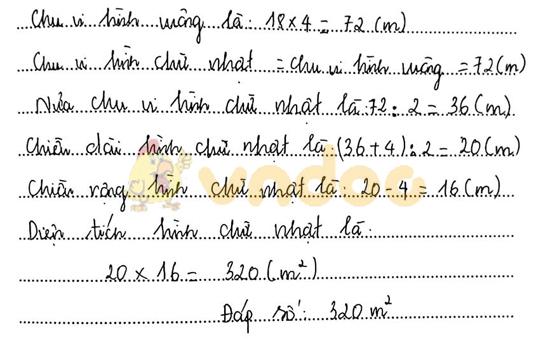 Chu vi hình vuông là: 18 x 4 = 72 (m)
Chu vi hình chữ nhật = chu vi hình vuông = 72 (m)
Nửa chu vi hình chữ nhật là: 72 : 2 = 36 (m)
Chiều dài hình chữ nhật là: (36 + 4) : 2 = 20 (m)
Chiều rộng hình chữ nhật là: 20 - 4 = 16 (m)
vndoc
Diện tích hình chữ nhật là:
20 x 16 = 320 (m²)
Đáp số: 320 m²